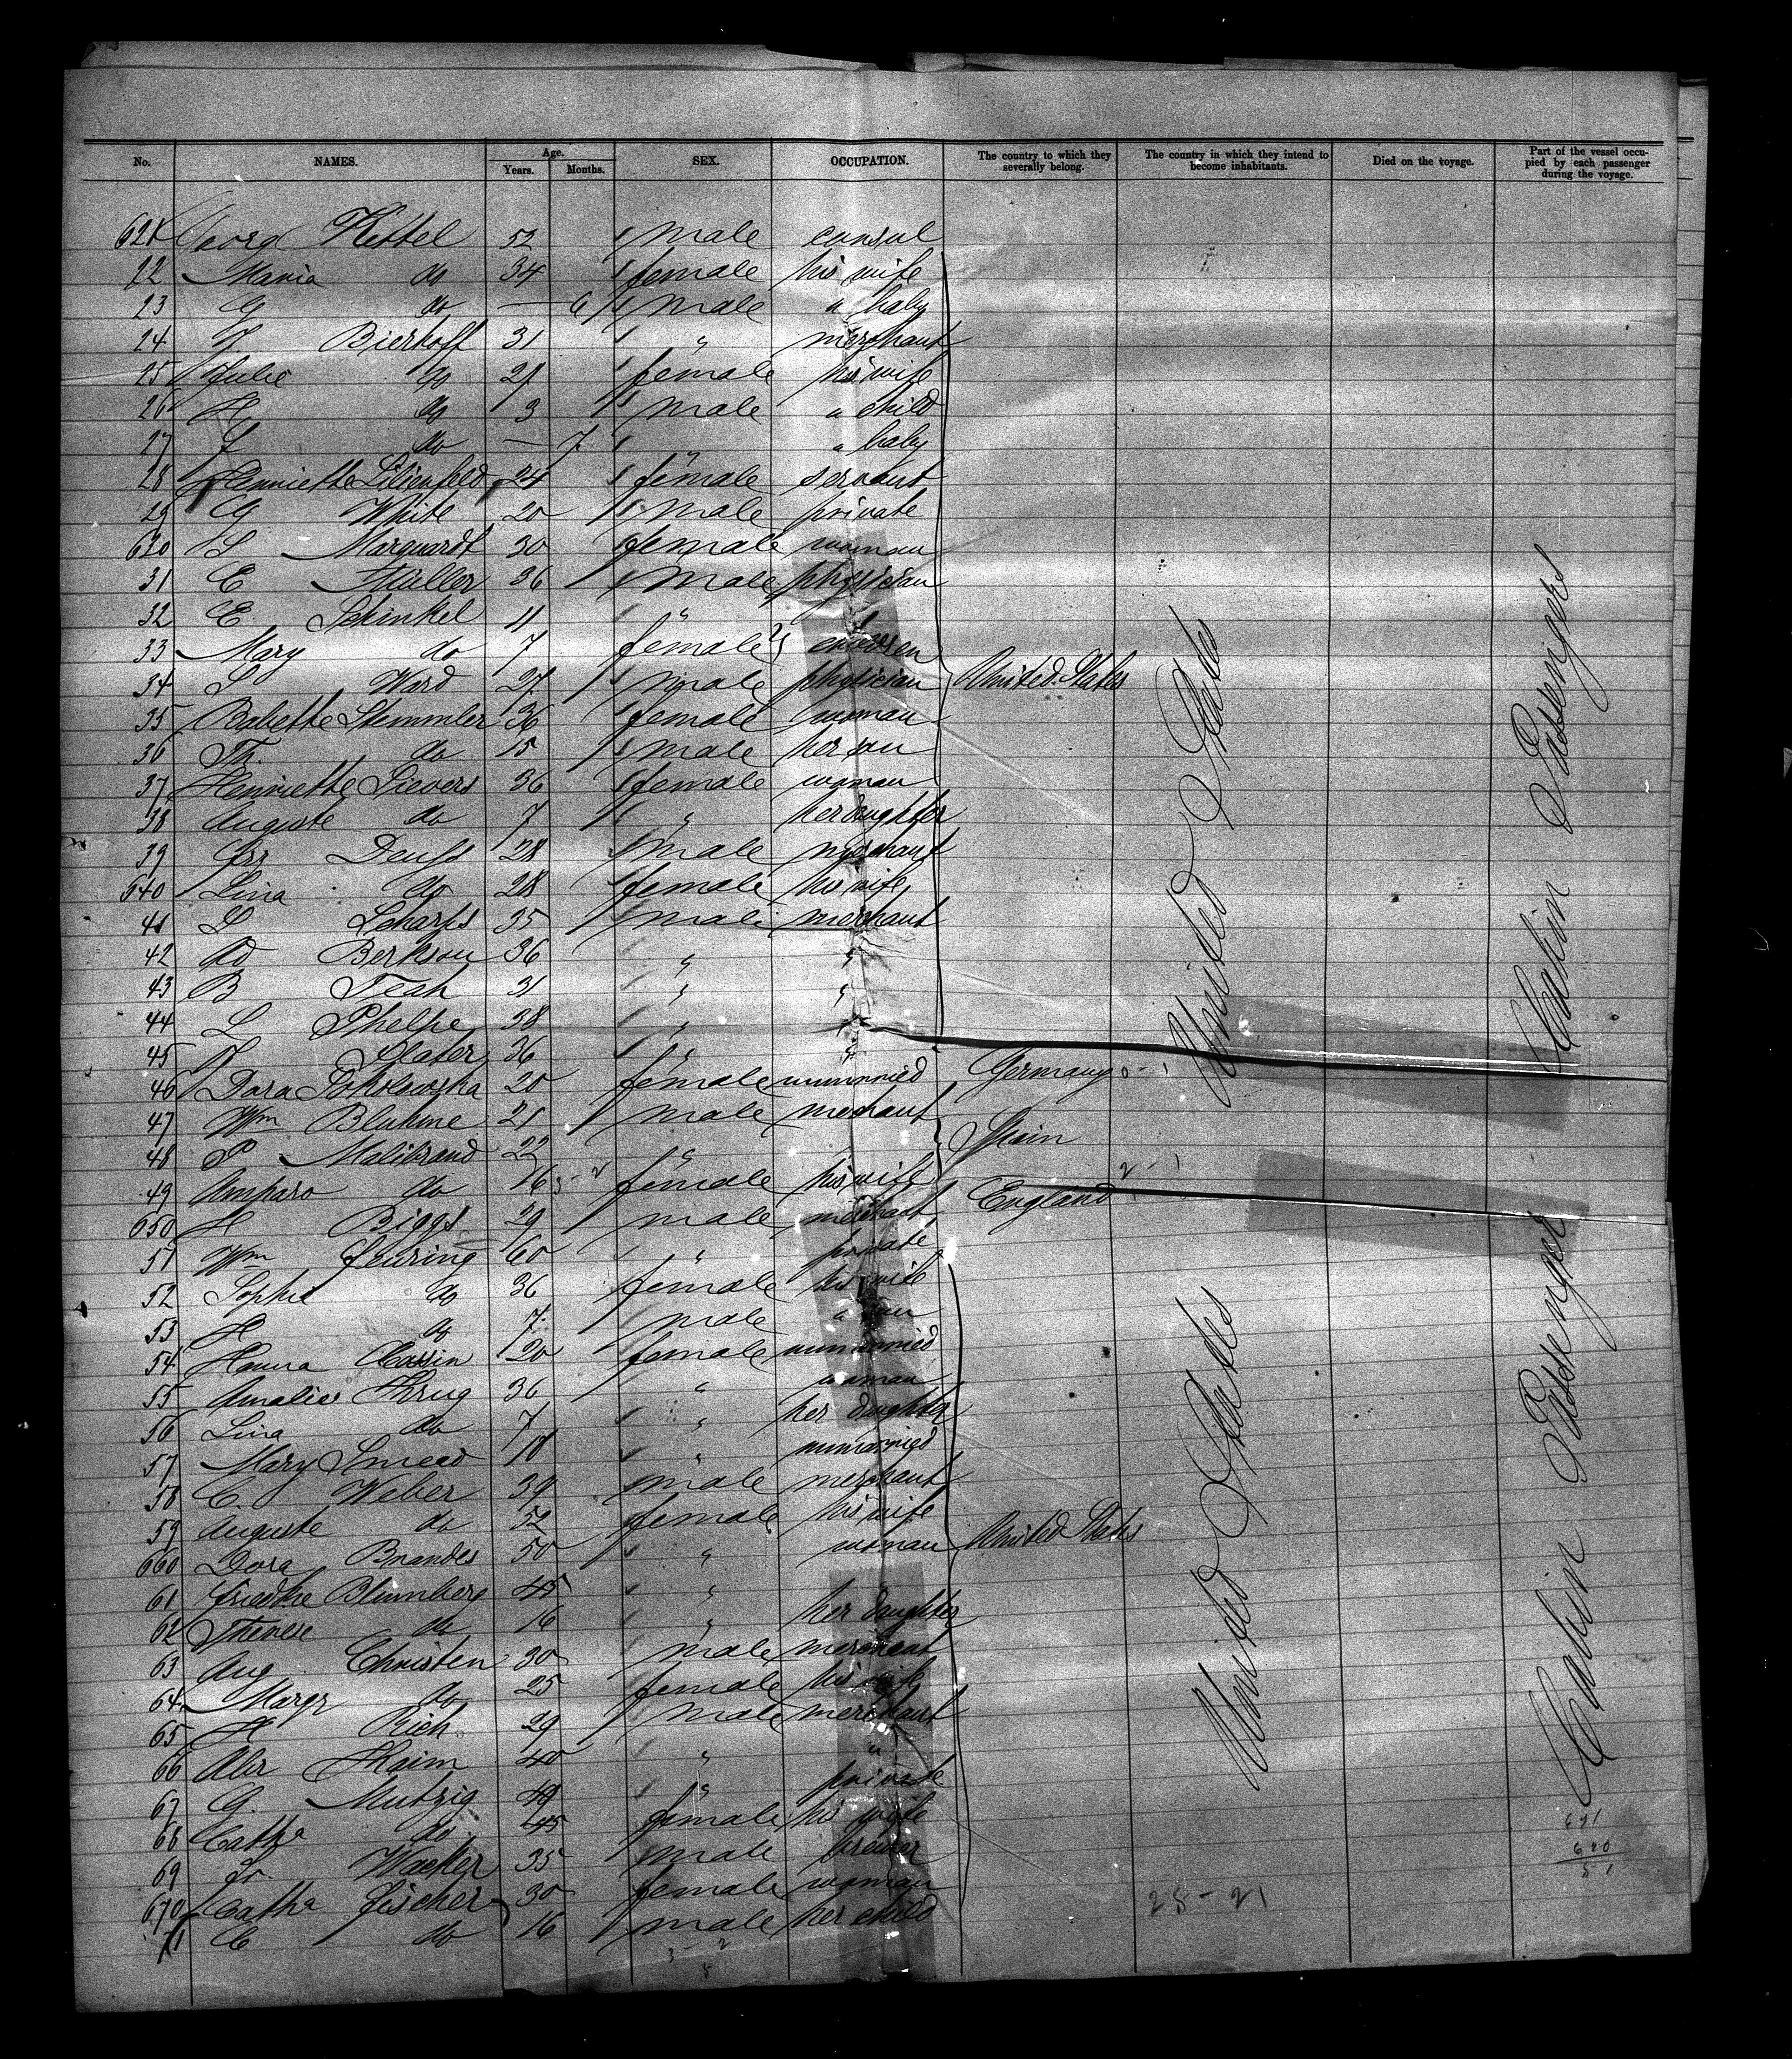 No. NAMES. Age. Years. Months. SEX. OCCUPATION. The country to which they severally belong. The country in which they intend to become inhabitants. Died on the voyage. Part of the vessel occupied by each passenger during the voyage.
621 Georg Kettel 52 male consul
22 Maria do 34 female his wife
23 G do — 6 male " baby
24 J Bierhoff 31 " merchant
25 Julie do 21 female his wife
26 H do 3 male " child
27 do — 7 " " baby
28 Henriette Lilienfeld 24 female servant
29 G White 20 male private
630 L Marquardt 30 female woman
31 E Müller 36 male physician
32 E. Schinkel 11 "
33 Mary do 7 female children
34 L Ward 27 male physician United States
35 Babette Stemmler 36 female woman
36 Th. do 15 male her son
37 Henriette Sievers 36 female woman
38 Auguste do 7 " her daughter
39 Deuss 28 male merchant
640 Lina do 28 female his wife
41 Scharps 35 male merchant
42 Ad Berkson 36 " "
43 B Teah 31 " "
44 L Phelps 38 " "
45 J Slater 36 " "
46 Dora Sokolowska 20 female unmarried Germany
47 Wm Bluhme 21 male merchant
48 P Malibrand 22 " Spain
49 Amparo do 16 female his wife
650 H Biggs 29 male merchant England
51 Wm Jeuring 60 " private
52 Sophie do 36 female his wife
53 H do 7 male " son
54 Hanna Cassin 20 female unmarried
55 Amalie Krug 36 " woman
56 Lina do 7 " her daughter
57 Mary Smeed 18 " unmarried
58 C. Weber 39 male merchant
59 Auguste do 52 female his wife
660 Dora Brandes 50 " woman United States
61 Friedke Blumberg 45 " "
62 Therese do 16 " her daughter
63 Aug Christen 30 male merchant
64 Margr do 25 female his wife
65 H Rich 29 male merchant
66 Abr Haim 40 " "
67 G. Mutzig 49 " private
68 Catha do 45 female his wife
69 Fr. Wacker 35 male brewer
670 Catha Fischer 30 female woman
71 C do 16 male her child
United States
Cabin Passengers
United States
Cabin Passenger
28 - 21